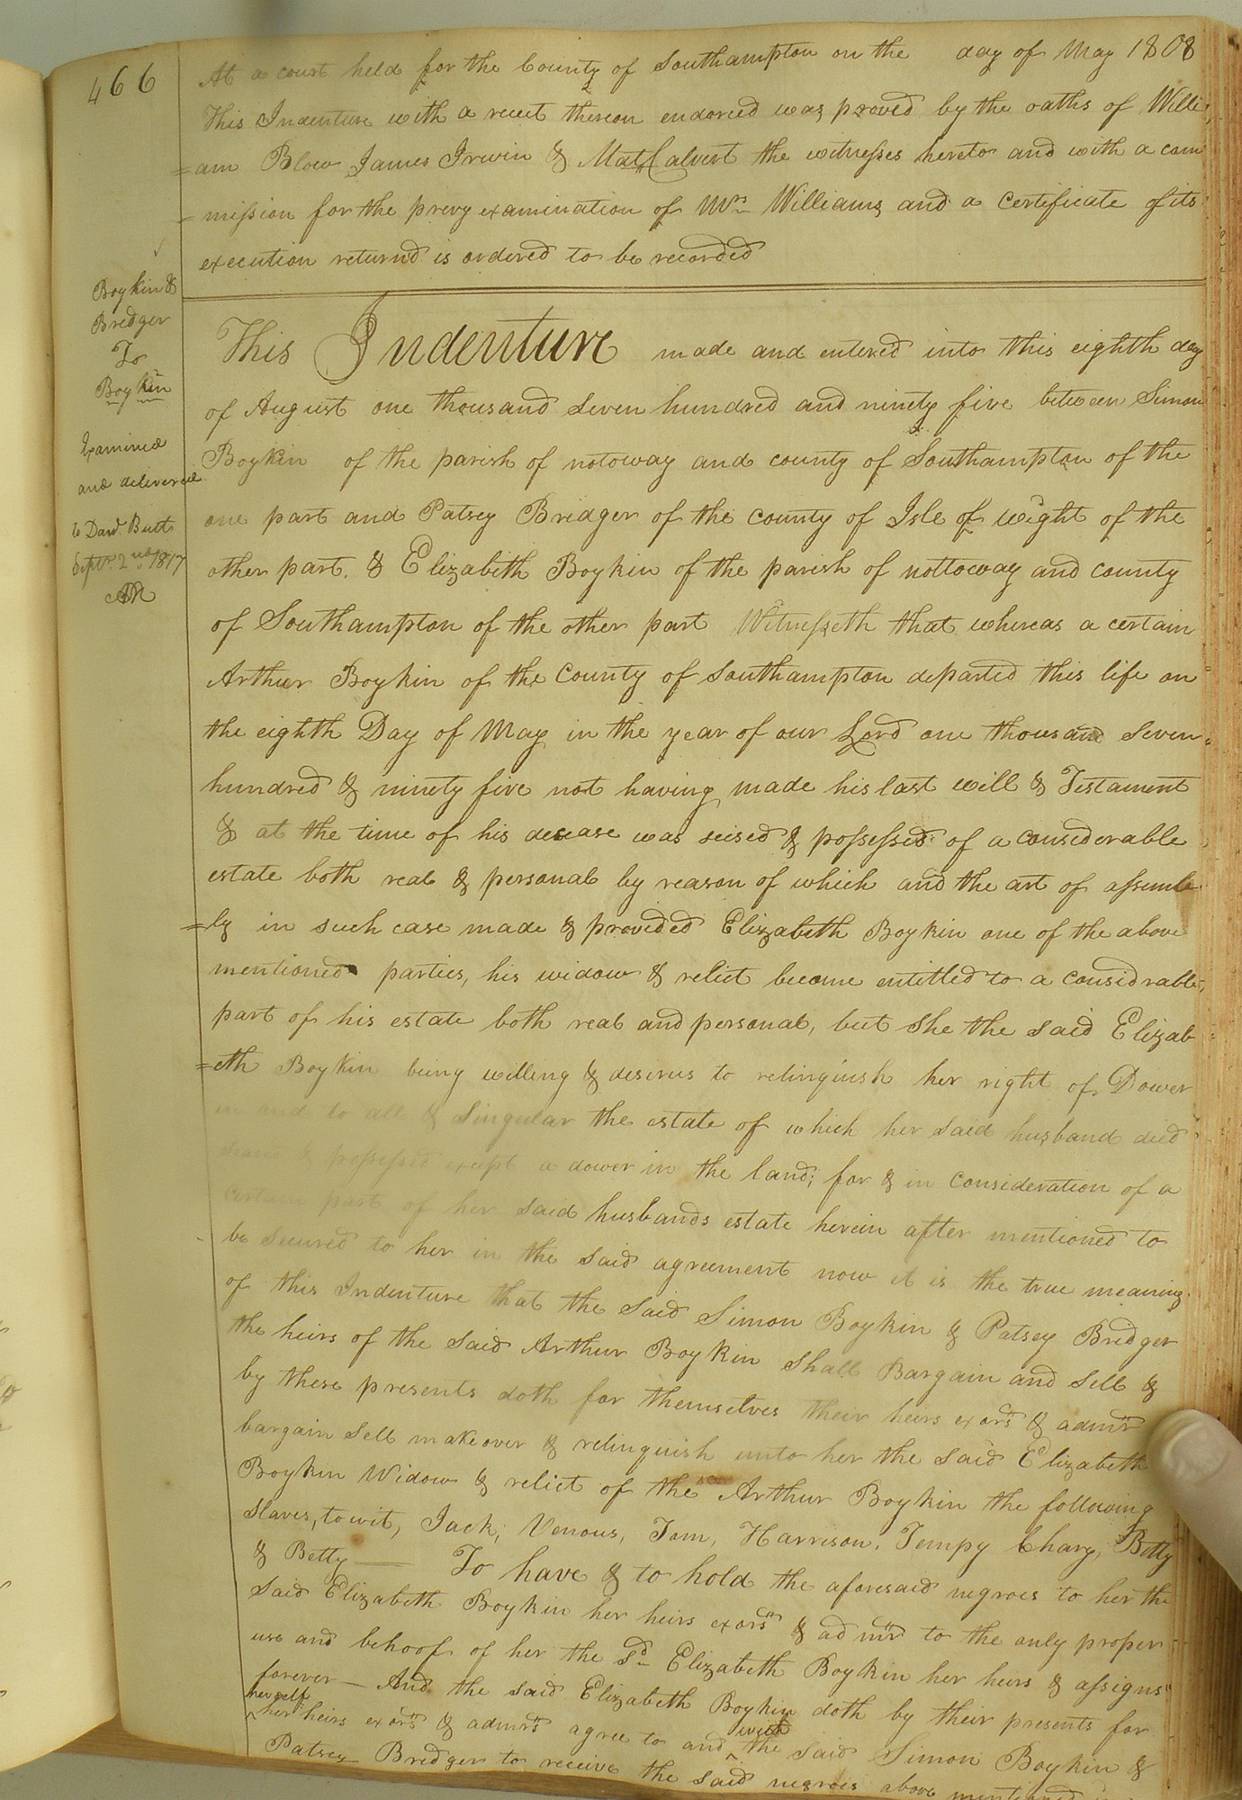 466
At a court held for the County of Southampton on the day of May 1808
This Indenture with a receit thereon endorced was proved by the oaths of Willi
=am Blow James Irwin & Mat. Calvert the witnesses hereto and with a com
-mission for the prevy examination of Mrs Williams and a certificate of its
execution returnd is ordered to be recorded
Boykin &
Bredger
To
Boykin
Examined
and delivered
to Davd. Butts
Septr. 2nd 1817
This Indenture made and entered into this eighth day
of August one thousand seven hundred and ninety five between Simon
Boykin of the parish of notoway and county of Southampton of the
one part and Patsey Bredger of the county of Isle of wight of the
other part. & Elizabeth Boykin of the parish of nottoway and county
of Southampton of the other part Witnesseth that whereas a certain
Arthur Boykin of the County of Southampton departed this life on
the eighth Day of May in the year of our Lord one thousand seven=
hundred & ninety five not having made his last will & Testament
& at the time of his desease was seised & possessed of a considerable
estate both real & personal by reason of which and the act of assemb
=ly in such case made & provided Elizabeth Boykin one of the above
mentioned parties, his widow & relict become entitled to a considrable,
part of his estate both real and personal, but she the said Elizab
=eth Boykin being willing & desirus to relinquish her right of Dower
in and to all & Singular the estate of which her said husband died
& possessed except a dower in the land; for & in consideration of a
certain part of her said husbands estate herein after mentioned to
be secured to her in the said agreement now it is the true meaning
of this Indenture that the said Simon Boykin & Patsey Bredger
the heirs of the said Arthur Boykin shall Bargain and sell &
by these presents doth for themselves their heirs exors & admrs
bargain sell makeover & relinquish unto her the said Elizabeth
Boykin Widow & relict of the Arthur Boykin the following
slaves, to wit, Jack, Venous, Tom, Harrison, Tempy Chary, Betty
& Betty — To have & to hold the aforesaid negroes to her the
said Elizabeth Boykin her heirs exors & admrs to the only proper
use and behoof of her the sd. Elizabeth Boykin her heirs & assigns
forever — And the said Elizabeth Boykin doth by their presents for
herself
her heirs exors & admrs agree to and with the said Simon Boykin &
Patsey Bredger to receive the said negroes above mentioned